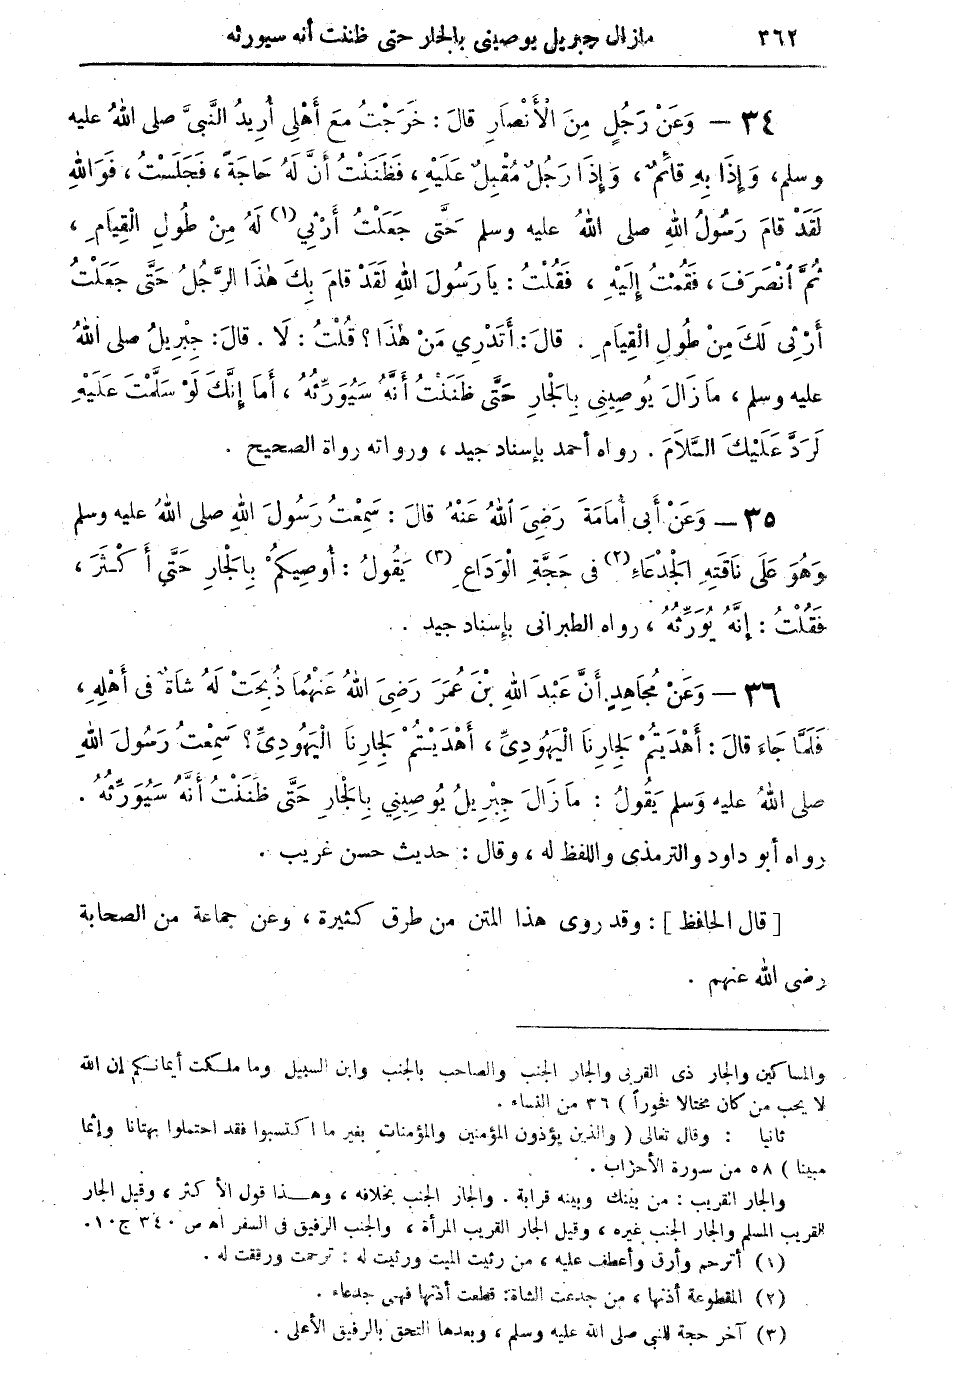 ٣٦٢ مازال جبريل يوصينى بالجار حتى ظننت أنه سيورثه
٣٤ – وَعَنْ رَجُلٍ مِنَ الْأَنْصَارِ قالَ : خَرَجْتُ مَعَ أَهْلِى أُرِيدُ النَّبِيَّ صلى اللهُ عليه
وسلم، وَإِذَا بِهِ قائِمٌ ، وَإِذَا رَجُلٌ مُقْبِلٌ عَلَيْهِ ، فَظَنَنْتُ أَنَّ لَهُ حَاجَةً ، فَجَلَسْتُ ، فَوَاللهِ
لَقَدْ قامَ رَسُولُ اللهِ صلى اللهُ عليه وسلم حَتَّى جَعَلْتُ أَرْثِي (١) لَهُ مِنْ طُولِ الْقِيَامِ ،
ثُمَّ ٱنْصَرَفَ ، فَقُمْتُ إِلَيْهِ ، فَقُلْتُ : يَا رَسُولَ اللهِ لَقَدْ قامَ بِكَ هٰذَا الرَّجُلُ حَتَّى جَعَلْتُ
أَرْثِى لَكَ مِنْ طُولِ الْقِيَامِ . قالَ : أَتَدْرِي مَنْ هٰذَا ؟ قُلْتُ : لَا . قالَ : جِبْرِيلُ صلى اللهُ
عليه وسلم ، مَازَالَ يُوصِينِى بِالْجَارِ حَتَّى ظَنَنْتُ أَنَّهُ سَيُوَرِّثُهُ ، أَمَا إِنَّكَ لَوْ سَلَّمْتَ عَلَيْهِ
لَرَدَّ عَلَيْكَ السَّلَامَ . رواه أحمد بإسناد جيد ، ورواته رواة الصحيح .
٣٥ – وَعَنْ أَبِى أُمَامَةَ رَضِىَ ٱللهُ عَنْهُ قالَ : سَمِعْتُ رَسُولَ اللهِ صلى اللهُ عليه وسلم
وَهُوَ عَلَى نَاقَتِهِ الْجَدْعَاءِ (٢) فى حَجَّةِ الْوَدَاعِ (٣) يَقُولُ : أُوصِيكُمْ بِالْجَارِ حَتَّى أَكْثَرَ ،
فَقُلْتُ : إِنَّهُ يُوَرِّثُهُ ، رواه الطبرانى بإسناد جيد .
٣٦ – وَعَنْ مُجَاهِدٍ أَنَّ عَبْدَ اللهِ بْنَ عُمَرَ رَضِىَ اللهُ عَنْهُمَا ذُبِحَتْ لَهُ شَاةٌ فى أَهْلِهِ ،
فَلَمَّا جَاءَ قالَ : أَهْدَيْتُمْ لِجَارِنَا الْيَهُودِىِّ ، أَهْدَيْتُمْ لِجَارِنَا الْيَهُودِىِّ ؟ سَمِعْتُ رَسُولَ اللهِ
صلى اللهُ عليه وَسلم يَقُولُ : مَازَالَ جِبْرِيلُ يُوصِينِي بِالْجَارِ حَتَّى ظَنَنْتُ أَنَّهُ سَيُوَرِّثُهُ .
رواه أبو داود والترمذى واللفظ له ، وقال : حديث حسن غريب .
[ قال الحافظ ] : وقد روى هذا المتن من طرق كثيرة ، وعن جماعة من الصحابة
رضى الله عنهم .
والمساكين والجار ذى القربى والجار الجنب والصاحب بالجنب وابن السبيل وما ملكت أيمانكم إن الله
لا يحب من كان مختالا فخوراً ) ٣٦ من النساء .
ثانيا : وقال تعالى ( والذين يؤذون المؤمنين والمؤمنات بغير ما اكتسبوا فقد احتملوا بهتانا وإثما
مبينا ) ٥٨ من سورة الأحزاب .
والجار القريب : من بينك وبينه قرابة . والجار الجنب بخلافه ، وهـذا قول الأكثر ، وقيل الجار
القريب المسلم والجار الجنب غيره ، وقيل الجار القريب المرأة ، والجنب الرفيق فى السفر اهـ ص ٣٤٠ ج ١٠.
(١) أترحم وأرق وأعطف عليه ، من رثيت الميت ورثيت له : ترحمت ورققت له .
(٢) المقطوعة أذنها ، من جدعت الشاة : قطعت أذنها فهى جدعاء .
(٣) آخر حجة للنبى صلى الله عليه وسلم ، وبعدها التحق بالرفيق الأعلى .